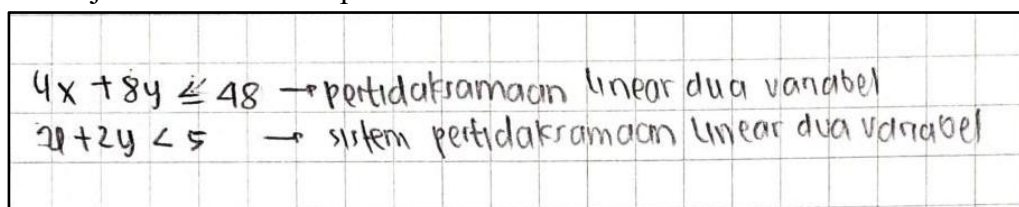 4x + 8y ≤ 48 → pertidaksamaan linear dua variabel
+ 2y < 5 → sistem pertidaksamaan linear dua variabel